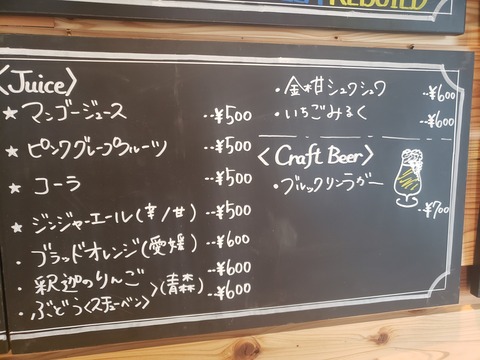 <Juice>
★ マンゴージュース --¥500
★ ピンクグレープフルーツ --¥500
★ コーラ --¥500
★ ジンジャーエール(辛/甘) --¥500
・ブラッドオレンジ(愛媛) --¥600
・釈迦のりんご --¥600
・ぶどう<スチューベン> >(青森) --¥600
・金柑シュワシュワ --¥600
・いちごみるく --¥600
<Craft Beer>
・ブルックリンラガー --¥700